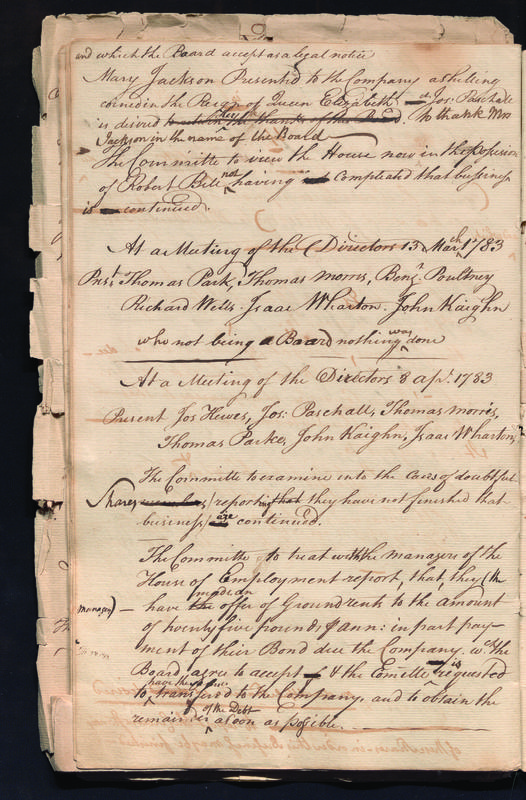 and which the Board accept as a legal notice
Mary Jackson Presented to the Company a shilling
coined in the Reign of Queen Elizabeth — & Jos: Paschall
is desired to return her the thanks of this Board. to thank Mrs
Jackson in the name of the Board
The Committe to view the House now in the possession
of Robert Bell not having compleated that business
is continued.
At a Meeting of the Directors 13 March 1783
Prest Thomas Park, Thomas Morris, Benjn Poultney
Richard Wells. Isaac Wharton. John Kaighn
who not being a Board nothing was done
At a Meeting of the Directors 8 apl. 1783
Present Jos Hewes, Jos: Paschall, Thomas Morris,
Thomas Parke, John Kaighn, Isaac Wharton,
The Committe to examine into the Cases of doubtful
Shares (reporting that they have not finished that
business) are continued.
The Committe to treat with the managers of the
House of Employment report, that they (the
managers) — have made an offer of Ground rents to the amount
of twenty five pounds ⅌ ann: in part pay-
ment of their Bond due the Company. wch the
Board agree to accept & the Comitte is requested
to have them transfered to the Company. and to obtain the
remainder of the Debt as soon as possible.